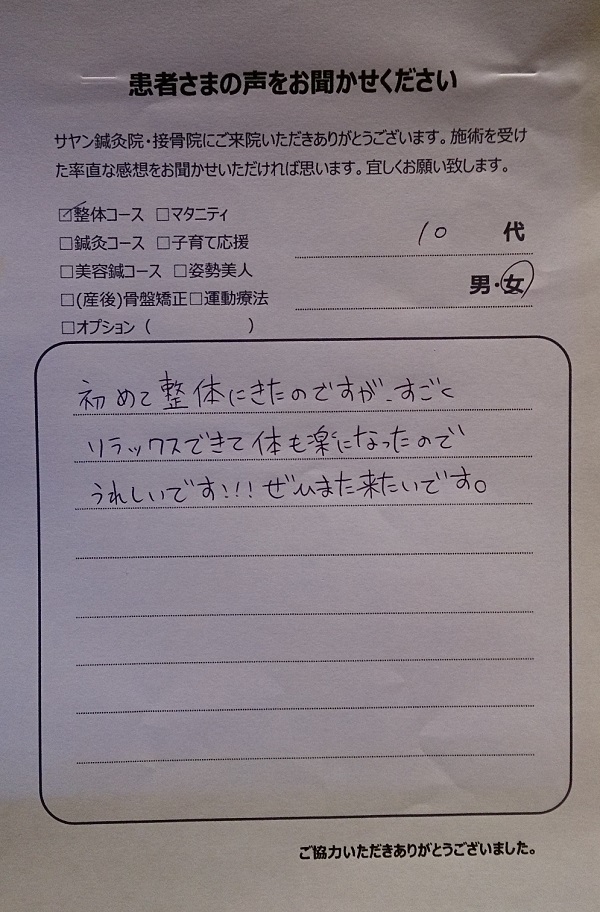 患者さまの声をお聞かせください
サヤン鍼灸院・接骨院にご来院いただきありがとうございます。施術を受け
た率直な感想をお聞かせいただければ思います。宜しくお願い致します。
☑整体コース □マタニティ
□鍼灸コース □子育て応援
10 代
□美容鍼コース □姿勢美人
男・女
□(産後)骨盤矯正□運動療法
□オプション ( )
初めて整体にきたのですが、すごく
リラックスできて体も楽になったので
うれしいです!!! ぜひまた来たいです。
ご協力いただきありがとうございました。